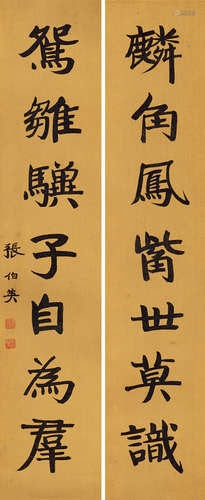 麟角鳳觜世莫識
鵷雛驥子自為羣
張伯英